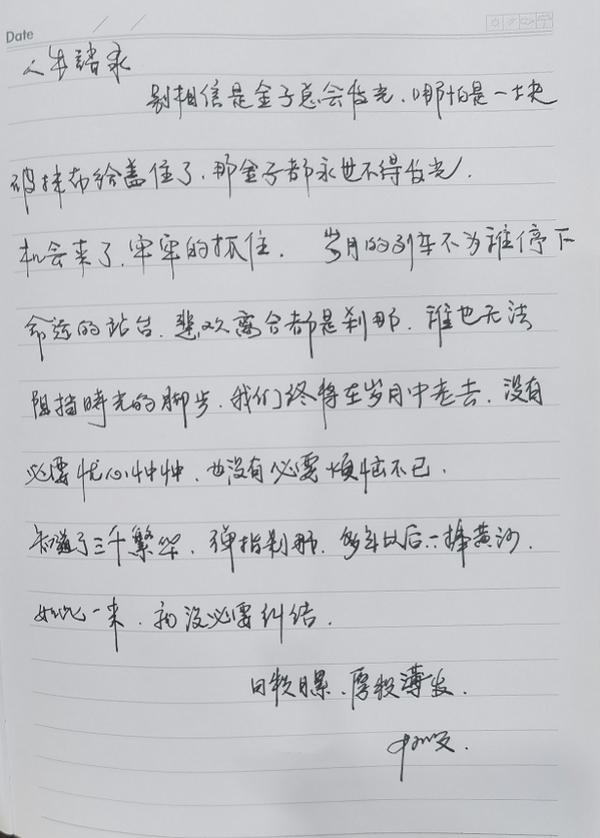 Date
人生語录
别相信是金子总会发光，哪怕是一块
破抹布给盖住了，那金子都永世不得发光．
机会来了，牢牢的抓住．岁月的列车不为谁停下
命运的站台，悲欢离合都是刹那，谁也无法
阻挡時光的脚步，我们终将在岁月中老去，没有
必要忧心忡忡，也没有必要煩恼不已．
知道了三千繁华，弹指刹那，多年以后一捧黄沙，
如此一来，就没必要纠结．
日积月累，厚积薄发．